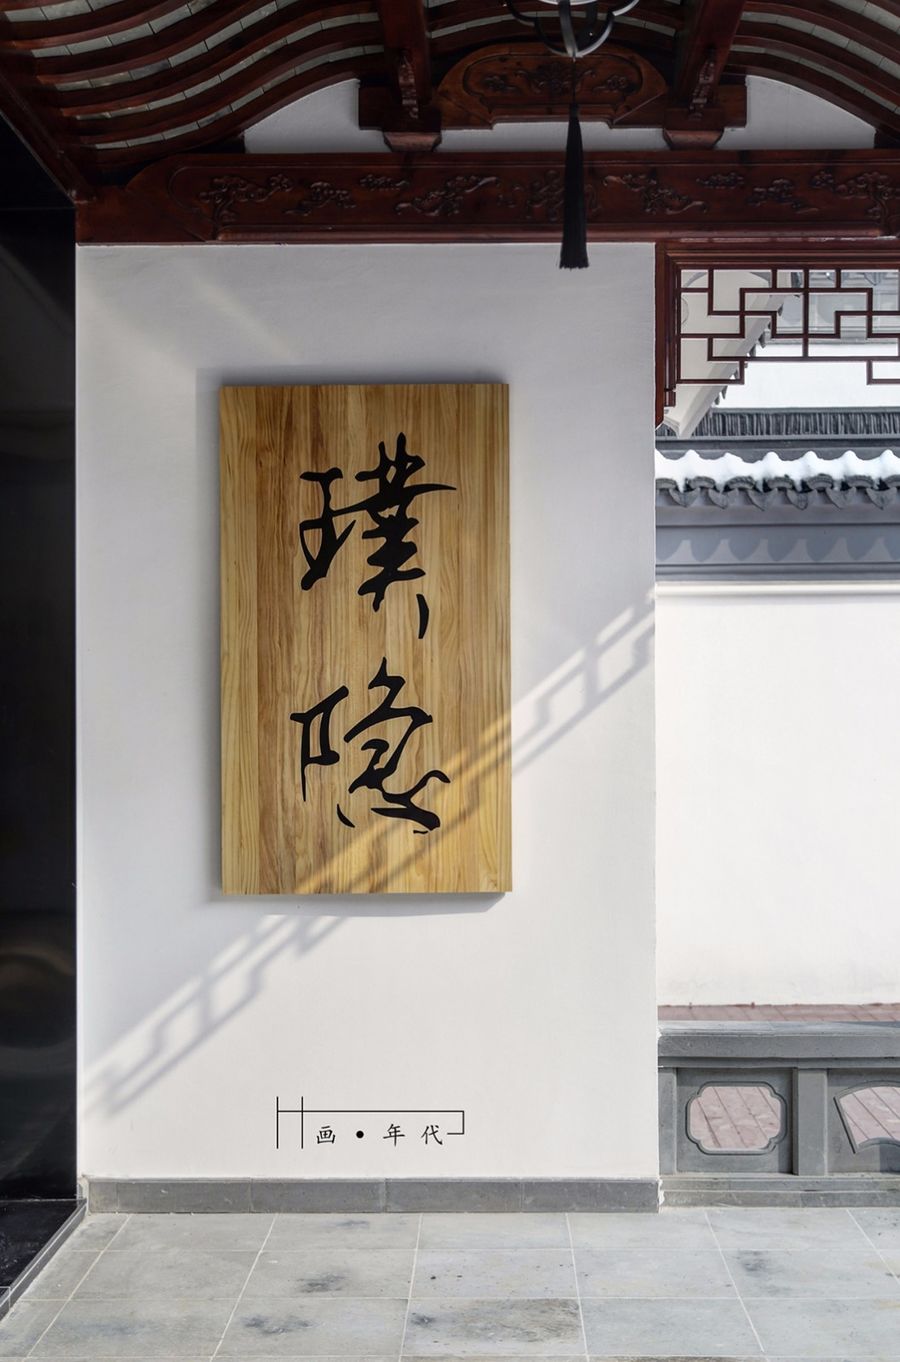 璞隐
画·年代